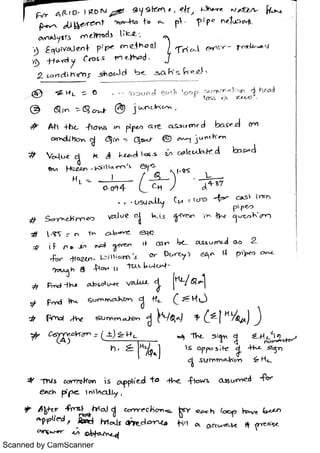 For GRID-IRON system, etc, where water
from different routes to a pt. pipe network
analysis methods like:
1) Equivalent pipe method } Trial error
2) Hardy Cross method.
2 conditions should be satisfied.
Ⓐ ΣHL = 0 around each loop summation of head loss is zero.
Ⓑ Qin = Qout @ junction.
# All the flows in pipes are assumed based on
condition of Qin = Qout @ any junction
# Value of head loss is calculated based
on Hazen-William's eqn
HL = 1/0.094 (Q/CH)^1.85 · L/d^4.87
... usually CH = 100 for cast iron pipes
# Sometimes value of k is given in the question
# 1.85 = n in above eqn
# if n is not given it can be assumed as 2
for Hazen-William's or Darcy's eqn if pipes are
rough & flow is turbulent.
# Find the absolute value of |HL/Qa|
# Find the summation of HL (ΣHL)
# Find the summation of |HL/Qa| (Σ|HL/Qa|)
# Correction = (±) ΣHL / n. Σ|HL/Qa| → The sign of ΣHL in numerator is opposite of the sign of summation ΣHL.
(Δ)
# This correction is applied to the flows assumed for
each pipe initially.
# After first trial of corrections for each loop have been
applied, trials are done till a accurate & precise
answer is obtained
Scanned by CamScanner